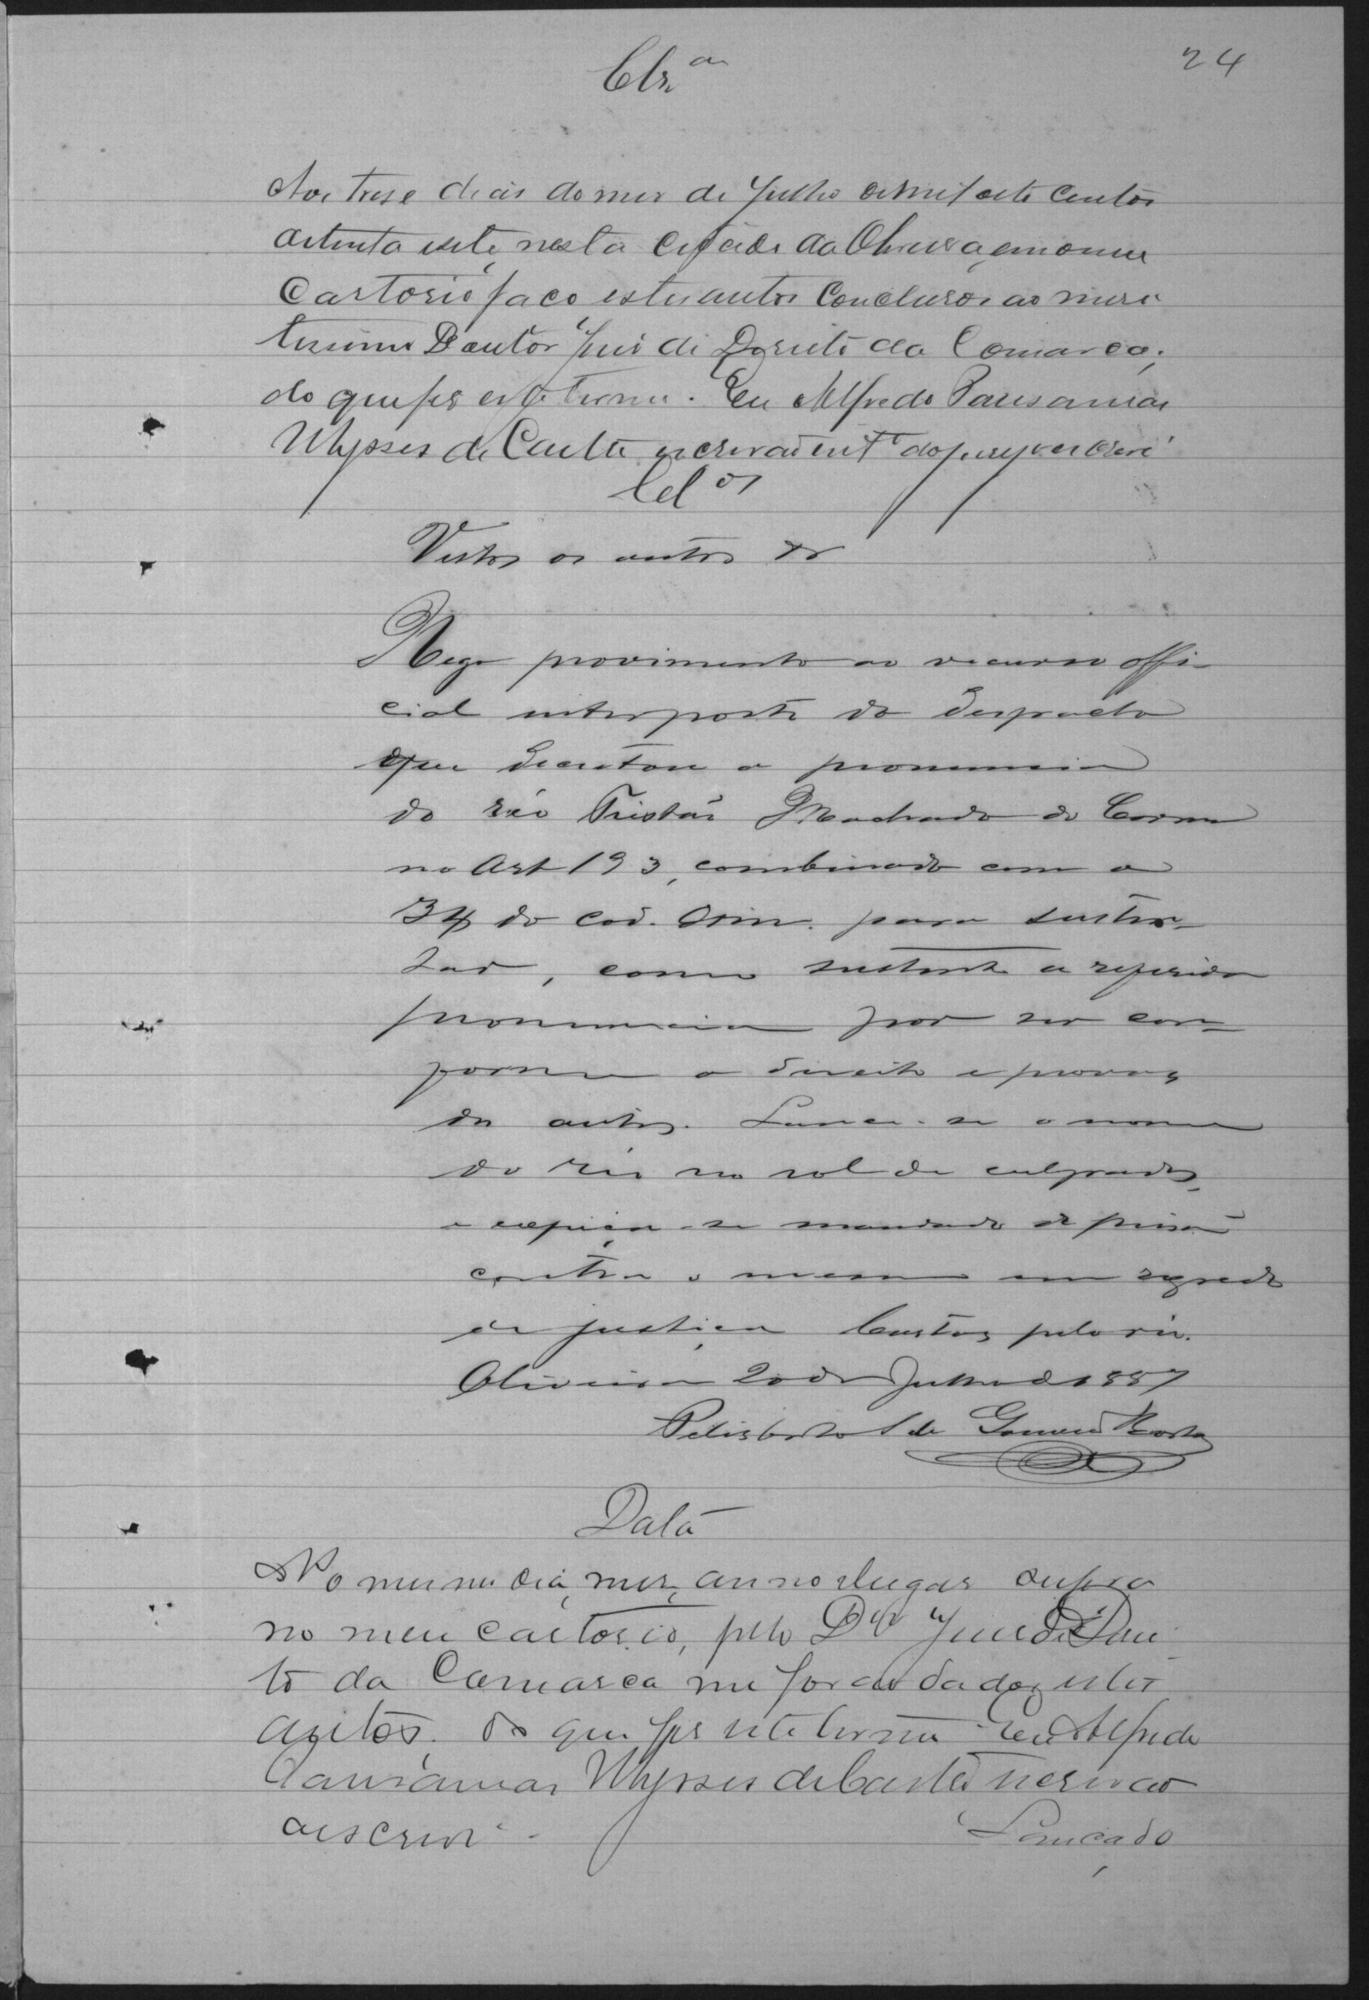 24
Clsam
Aos trese dias do mes de Julho de mil oito centos
oitenta e sete, nesta Cidade da Oliveira, em o meu
Cartorio faço estes autos Conclusos ao mere
tissimo Doutor Juis de Dereito da Comarca;
do que fis este termo. Eu Alfredo Pausanias
Ulysses de Castro escrivão int.º do jury o escrevi
Cclos
Vistos os autos &
Nego provimento ao recurso offi-
cial interposto do despacho
que decretou a pronuncia
do réo Tristão Machado de
no Art 193, combinado com o
34 do cod. Crim. para susten-
tar, como sustento a referida
pronuncia por ser con-
forme o direito e provas
dos autos. Lance-se o nome
do réo no rol de culpados,
e expeça-se mandado de prisão
contra o mesmo em segredo
de justiça Custas pelo réo.
Oliveira 20 de Julho de 1887
Felisberto S de Gomes Horta
Data
No mesmo dia, mes, anno e lugar supra
no meu cartorio, pelo Dr. Juis de Drei
to da Comarca me forão dados estes
autos. do que fis este termo Eu Alfredo
Pausanias Ulysses de Castro escrivão
o escrevi.
Lançado